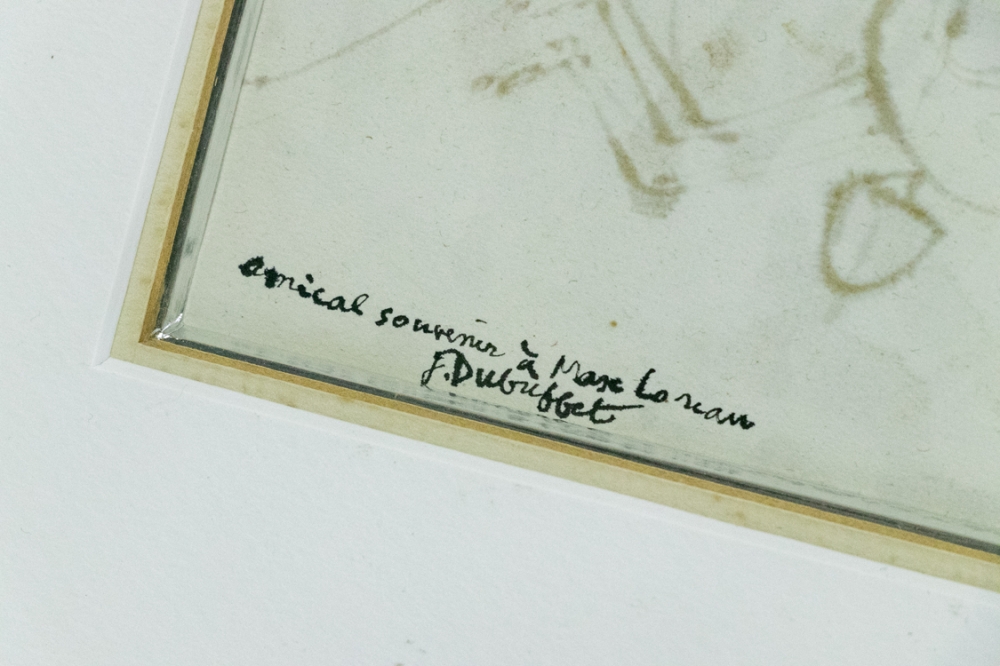 amical souvenir à Max Loreau
J. Dubuffet